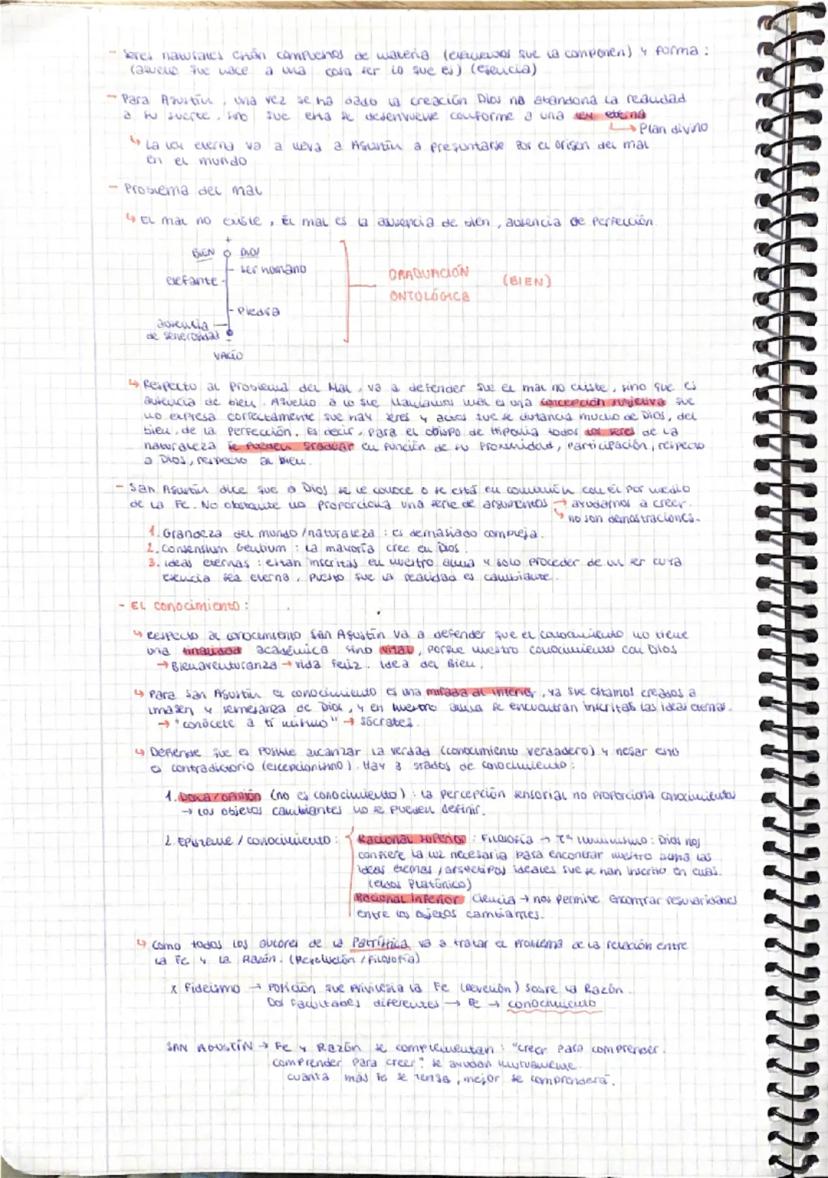 - Seres naturales están compuestos de materia (elementos que la componen) y forma:
(aquello que hace a una cosa ser lo que es) (esencia)
- Para Agustín, una vez se ha dado la creación Dios no abandona la realidad
a su suerte, sino que esta se desenvuelve conforme a una ley eterna
↳ Plan divino
↳ La ley eterna va a lleva a Agustín a preguntarse por el origen del mal
en el mundo
- Problema del mal
↳ El mal no existe, El mal es la ausencia de bien, ausencia de perfección.
+
BIEN DIOS
ser humano
elefante
Piedra
ausencia
de generosidad
-
VACÍO
GRADUACIÓN
ONTOLÓGICA
(BIEN)
↳ Respecto al Problema del Mal, va a defender que el mal no existe, sino que es
ausencia de bien. Aquello a lo que llamamos mal es una concepción subjetiva que
no expresa correctamente que hay seres y actos que se distancia mucho de Dios, del
bien, de la perfección. Es decir, para el obispo de Hiponia todos los seres de la
naturaleza se pueden graduar en función de su proximidad, participación, respecto
a Dios, respecto al bien.
- San Agustín dice que a Dios se le conoce o se está en comunión con él por medio
de la Fe. No obstante no proporciona una serie de argumentos → ayudarnos a creer.
↳ no son demostraciones.
1. Grandeza del mundo/naturaleza: es demasiado compleja.
2. Consensium Gentium: La mayoría cree en Dios
3. Ideas eternas: están inscritas en nuestro alma y solo proceder de un ser cuya
esencia sea eterna, puesto que la realidad es cambiante.
- EL conocimiento:
↳ Respecto al conocimiento San Agustín va a defender que el conocimiento no tiene
una finalidad académica sino vital, porque nuestro conocimiento con Dios
→ Bienaventuranza → vida feliz. Idea del Bien.
↳ Para San Agustín el conocimiento es una mirada al interior, ya que estamos creados a
imagen y semejanza de Dios, y en nuestro alma se encuentran inscritas las ideas eternas.
→ "conócete a ti mismo" → Sócrates.
↳ Defiende que es posible alcanzar la verdad (conocimiento verdadero) y negar esto
es contradictorio (escepcionismo). Hay 3 grados de conocimiento:
1. Doxa/opinión (no es conocimiento): la percepción sensorial no proporciona conocimientos
→ los objetos cambiantes no se pueden definir.
2. Episteme/conocimiento:
Racional superior: Filosofía → Tª Iluminismo: Dios nos
confiere la luz necesaria para encontrar nuestro alma las
ideas eternas/arquetipos ideales que se han inscrito en ellas.
(eidos Platónico)
Racional Inferior Ciencia → nos permite encontrar regularidades
entre los objetos cambiantes.
↳ como todos los autores de la Patrística va a tratar el problema de la relación entre
la Fe y la Razón. (Revelución/Filosofía)
x Fideísmo → Posición que privilegia la Fe (Revelión) sobre la Razón.
Dos facultades diferentes → Fe → conocimiento
SAN AGUSTÍN → Fe y Razón se complementan: "creer para comprender.
comprender para creer": se ayudan mutuamente
cuanta más fe se tenga, mejor se comprenderá.